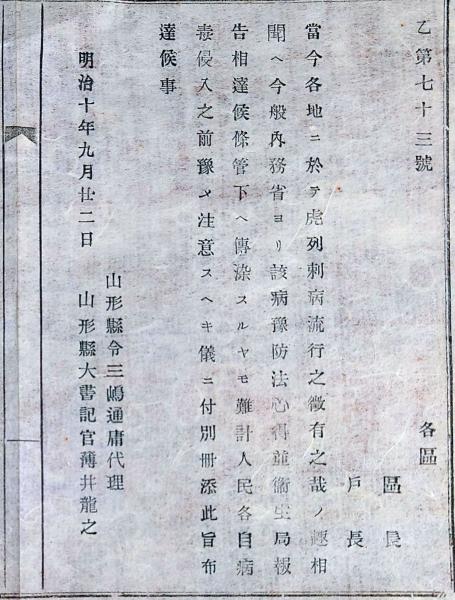 乙第七十三號
各區
區長
戶長
當今各地ニ於テ虎列刺病流行之徵有之哉ノ趣相
聞ヘ今般內務省ヨリ該病豫防法心得並衞生局報
告相達候條管下ヘ傳染スルヤモ難計人民各自病
毒侵入之前豫メ注意スヘキ儀ニ付別冊添此旨布
達候事
明治十年九月廿二日
山形縣令三嶋通庸代理
山形縣大書記官薄井龍之